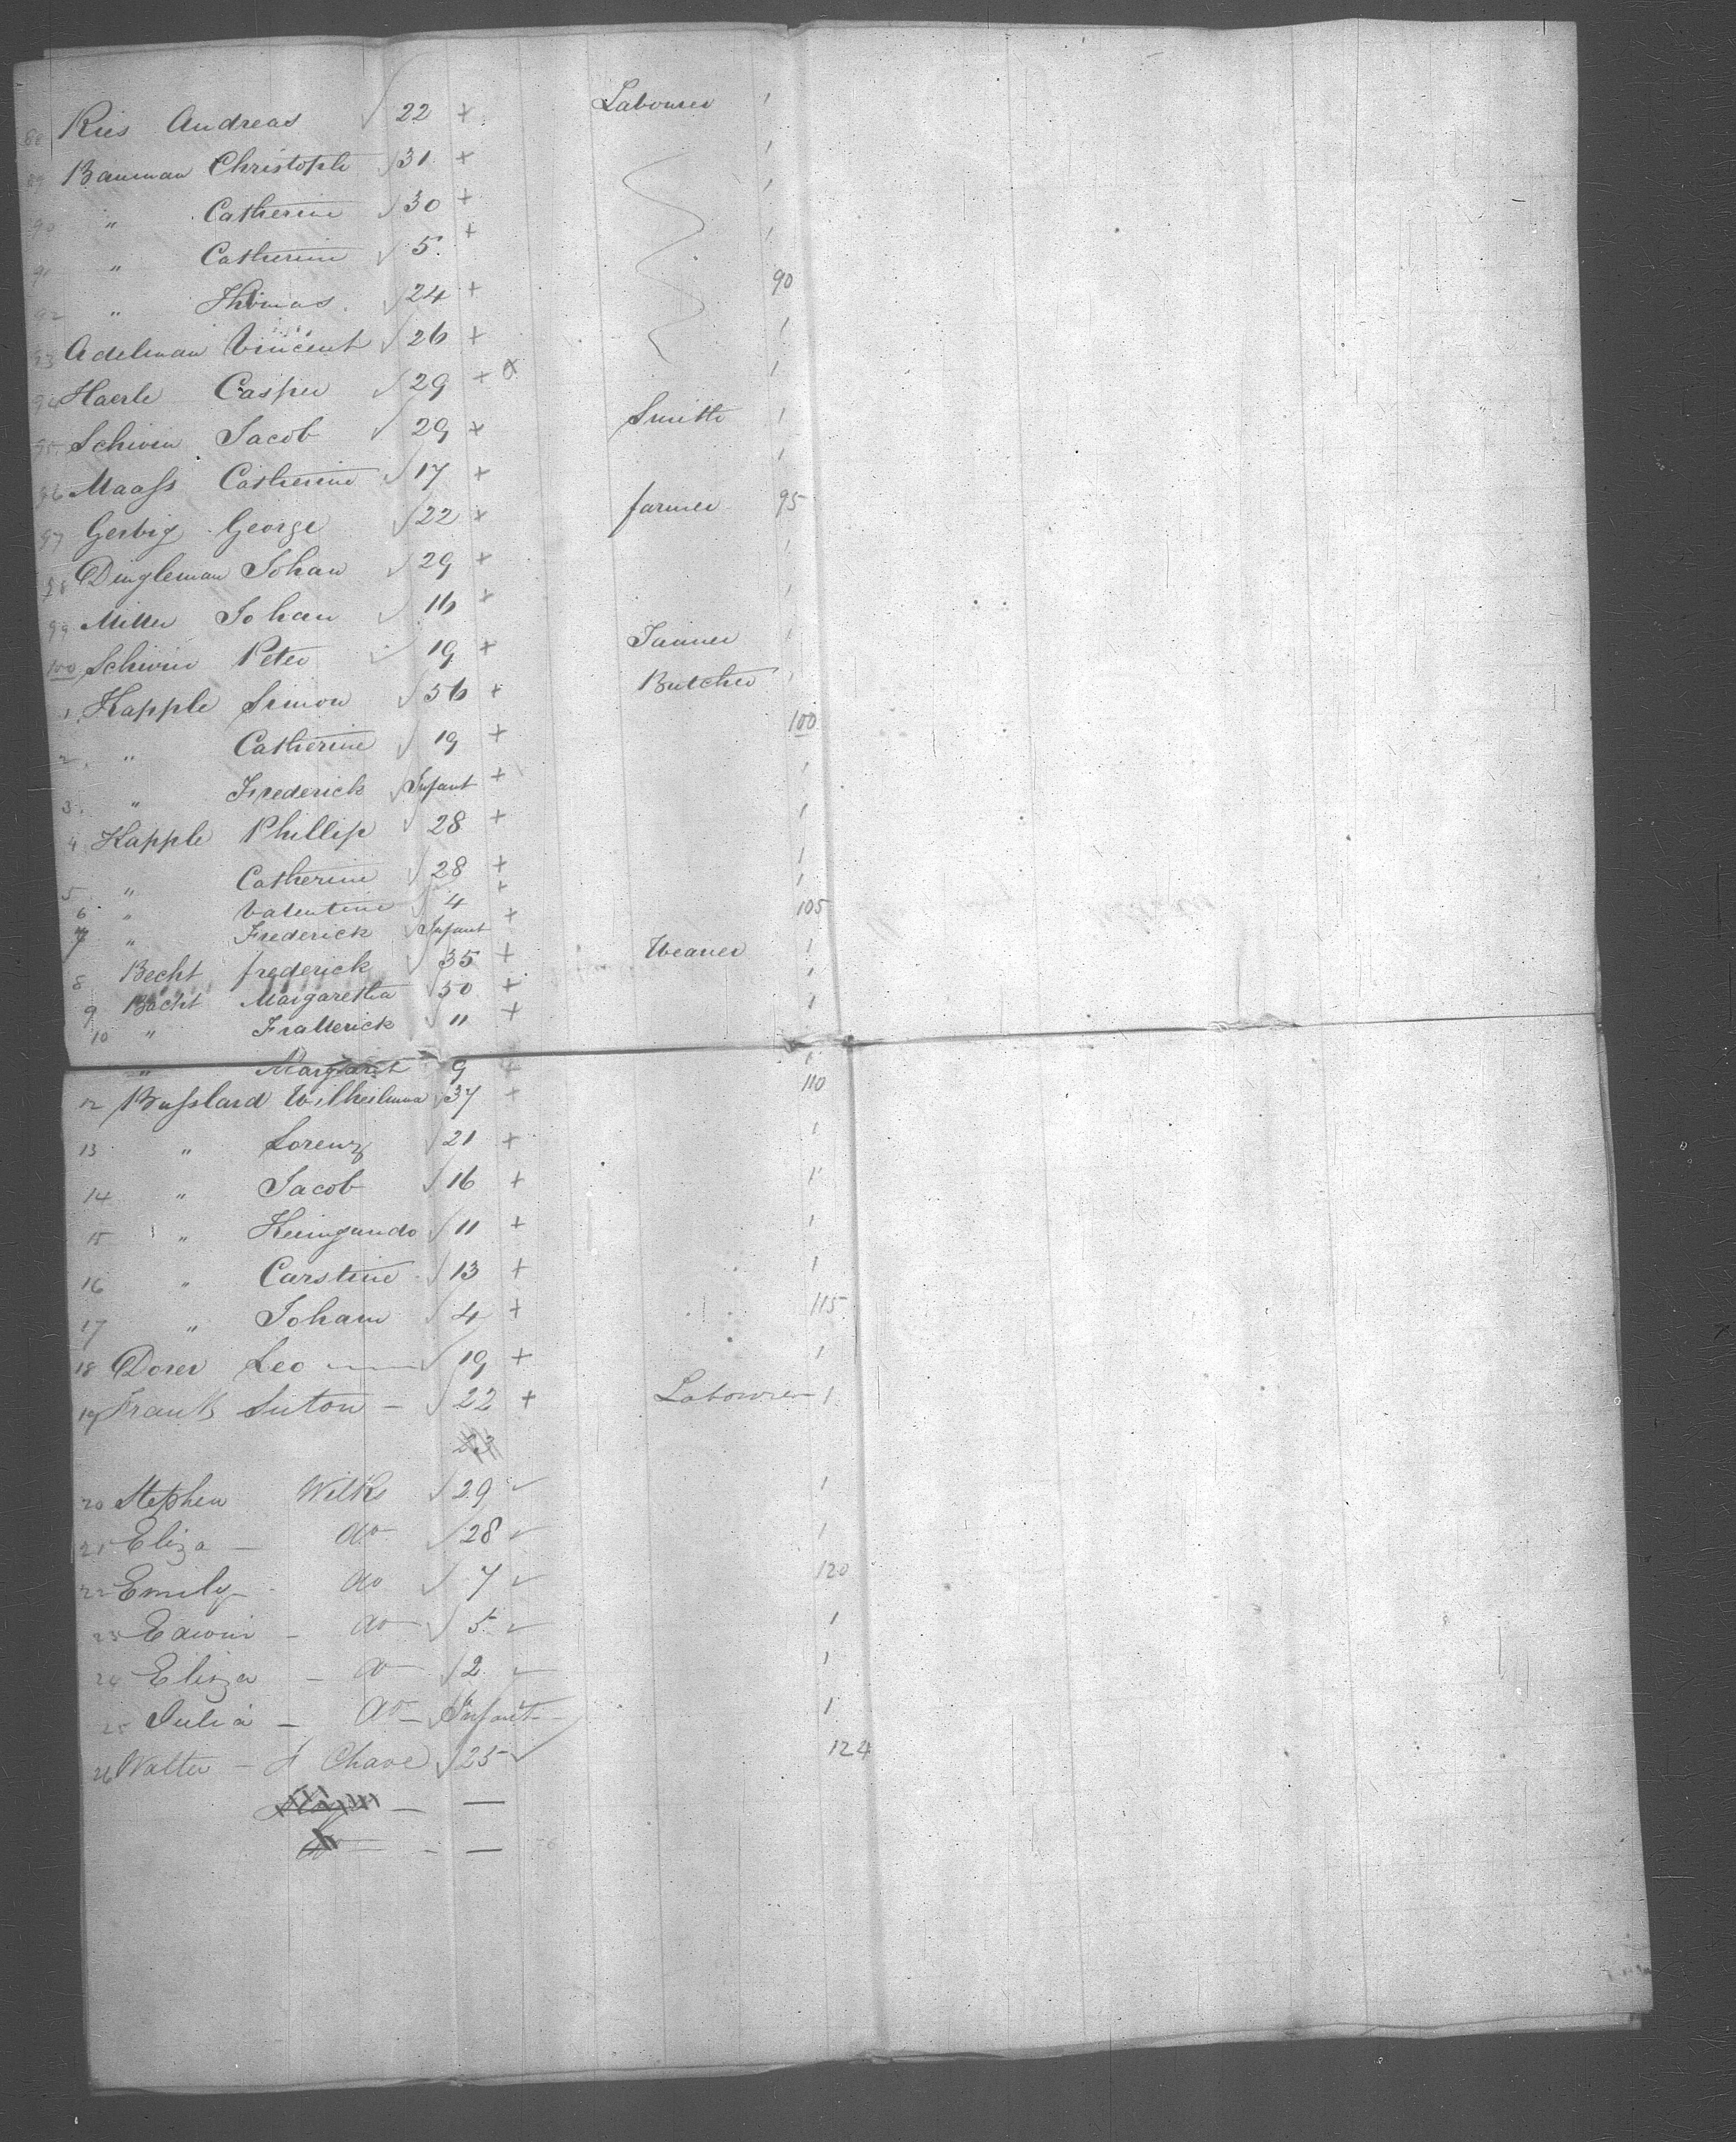 88 Ries Andreas √ 22 + Labourer 1
89 Bauman Christople √ 31 + 1
90 " Catherine √ 30 + 1
91 " Catherine √ 5 + 1
92 " Thomas √ 24 + 90
93 Adelman Vincent √ 26 + 1
94 Haerle Casper √ 29 + 1
95 Schwin Jacob √ 29 + Smith 1
96 Maass Catherine √ 17 + 1
97 Gerbig George √ 22 + farmer 95
98 Dingleman Johan √ 29 + 1
99 Miller Johan √ 16 + 1
100 Schwin Peter √ 19 + Tanner 1
1 Kapple Simon √ 56 + Butcher 1
2 " Catherine √ 19 + 100
3 " Frederick √ Infant + 1
4 Kapple Phillip √ 28 + 1
5 " Catherine √ 28 + 1
6 " Valentine √ 4 + 1
7 " Frederick √ Infant + 105
8 Becht frederick √ 35 + Weaver 1
9 Bacht Margaretha √ 50 + 1
10 " Fraderick √ 11 + 1
" Margaret 9 + 1
12 Bussland Wilhelmina √ 37 + 110
13 " Lorenz √ 21 + 1
14 " Jacob √ 16 + 1
15 " √ 11 + 1
16 " Carstine √ 13 + 1
17 " Johann √ 4 + 115
18 Dorer Leo √ 19 + 1
19 Frank Suton - √ 22 + Labourer 1
23
20 Stephen Wilks √ 29 √ 1
21 Eliza - do √ 28 √ 1
22 Emily - do √ 7 √ 120
23 Edwin - do √ 5 √ 1
24 Eliza - do √ 2 √ 1
25 Julia - do - √ Infant 1
26 Walter - Chave √ 25 √ 124
- —
do - —